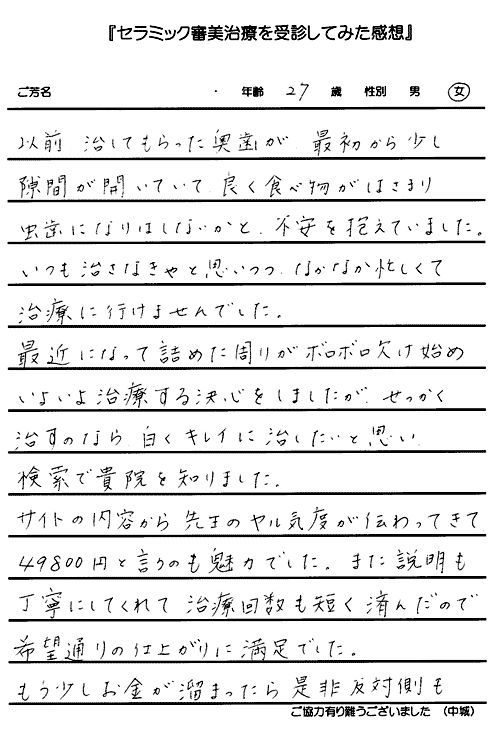 『セラミック審美治療を受診してみた感想』
ご芳名 ・ 年齢 27 歳 性別 男 女
以前 治してもらった奥歯が 最初から少し
隙間が開いていて 良く食べ物がはさまり
虫歯になりはしないかと、不安を抱えていました。
いつも治さなきゃと思いつつ なかなか忙しくて
治療に行けませんでした。
最近になって詰めた周りがボロボロ欠け始め
いよいよ治療する決心をしましたが せっかく
治すのなら 白くキレイに治したいと思い
検索で貴院を知りました。
サイトの内容から 先生のヤル気度が伝わってきて
49800円と言うのも魅力でした。また説明も
丁寧にしてくれて 治療回数も短く済んだので
希望通りの仕上がりに満足でした。
もう少しお金が溜まったら是非反対側も
ご協力有り難うございました （中城）